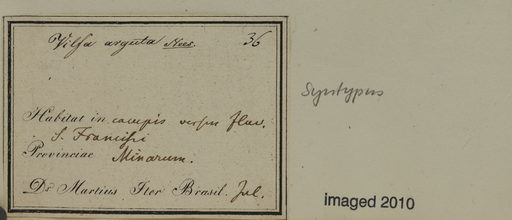 Vilfa arguta Nees. 36
Habitat in campis versus fluv.
S. Francisci
Provinciae Minarum.
Dr. Martius Iter Brasil. Jul.
Syntypus
imaged 2010